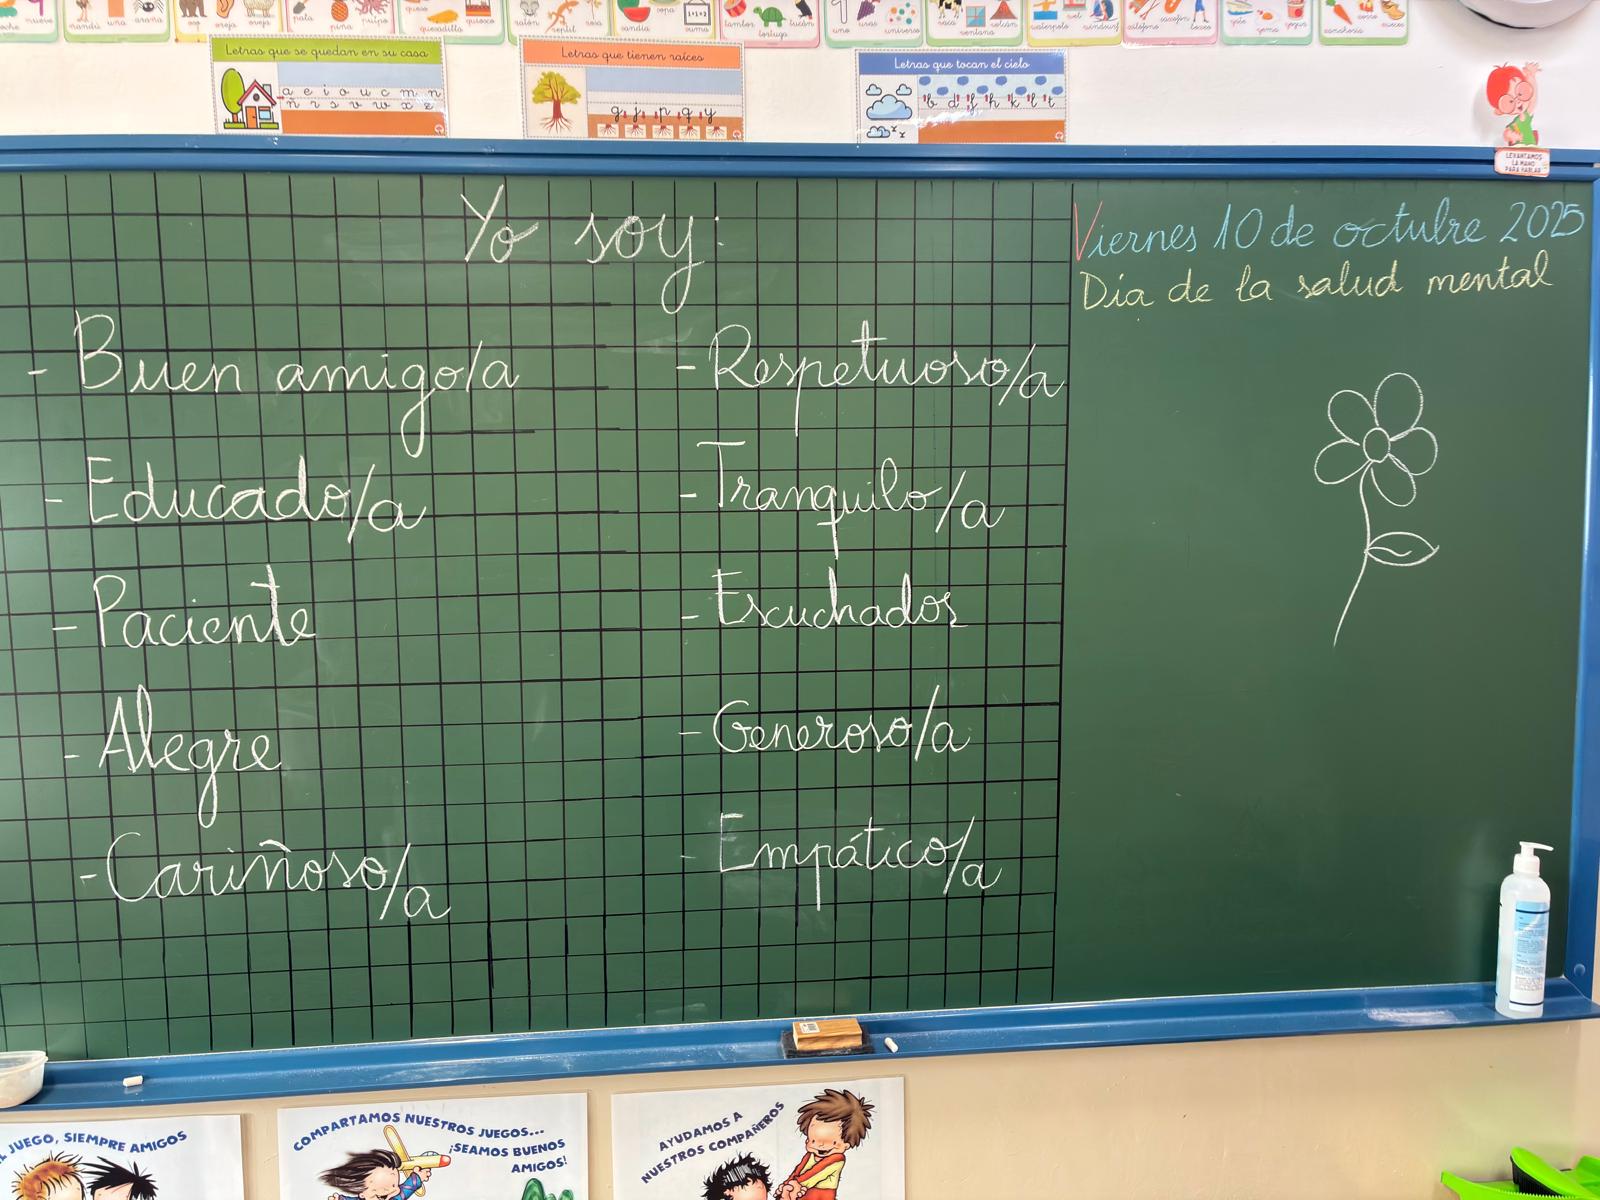 noche
mandu
uña
araña
oso
oreja
oveja
pata
piña
pulpo
queso
quesadilla
quiosco
ratón
reptil
rosa
sandía
suma
1+1=2
tambor
tortuga
tucán
uno
uvas
universo
vaca
ventana
volcán
waterpolo
wifi
windsurf
xilófono
saxofón
boxeo
yate
yema
yogur
zanahoria
zorro
Letras que se quedan en su casa
a e i o u c m n
ñ r s v w x z
Letras que tienen raíces
g j p q y
Letras que tocan el cielo
b d f h k l t
LEVANTAMOS
LA MANO
PARA HABLAR
Yo soy:
- Buen amigo/a
- Educado/a
- Paciente
- Alegre
- Cariñoso/a
- Respetuoso/a
- Tranquilo/a
- Escuchador
- Generoso/a
- Empático/a
Viernes 10 de octubre 2025
Día de la salud mental
JUEGO, SIEMPRE AMIGOS
COMPARTAMOS NUESTROS JUEGOS...
¡SEAMOS BUENOS
AMIGOS!
AYUDAMOS A
NUESTROS COMPAÑEROS